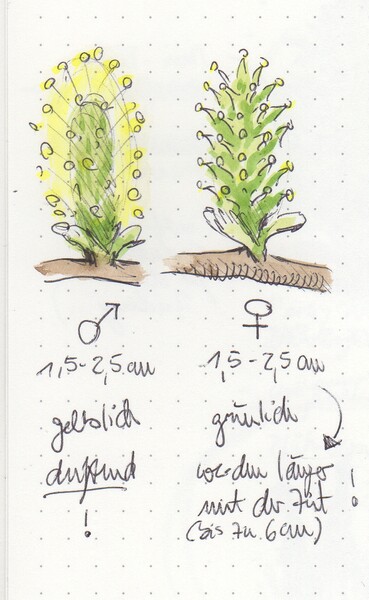 ♂
1,5-2,5 cm
gelblich
duftend
!
♀
1,5-2,5 cm
grünlich
werden länger
mit der Zeit
(bis zu 6 cm)
!